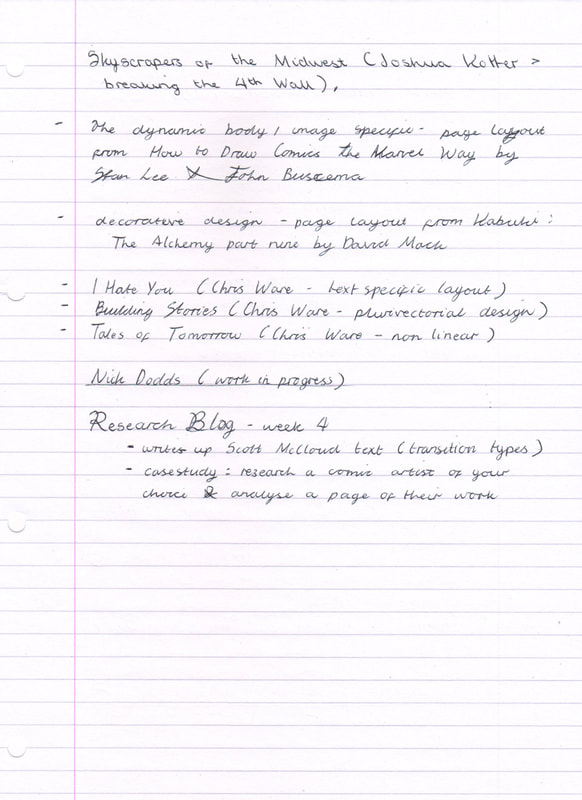 Skyscrapers of the Midwest (Joshua Kotter >
breaking the 4th Wall),
- The dynamic body / image specific - page layout
from How to Draw Comics the Marvel Way by
Stan Lee & John Buscema
- decorative design - page layout from Kabuki:
The Alchemy part nine by David Mack
- I Hate You (Chris Ware - text specific layout)
- Building Stories (Chris Ware - plurivectorial design)
- Tales of Tomorrow (Chris Ware - non linear)
Nick Dodds (work in progress)
Research Blog - week 4
- write up Scott McCloud text (transition types)
- casestudy: research a comic artist of your
choice & analyse a page of their work